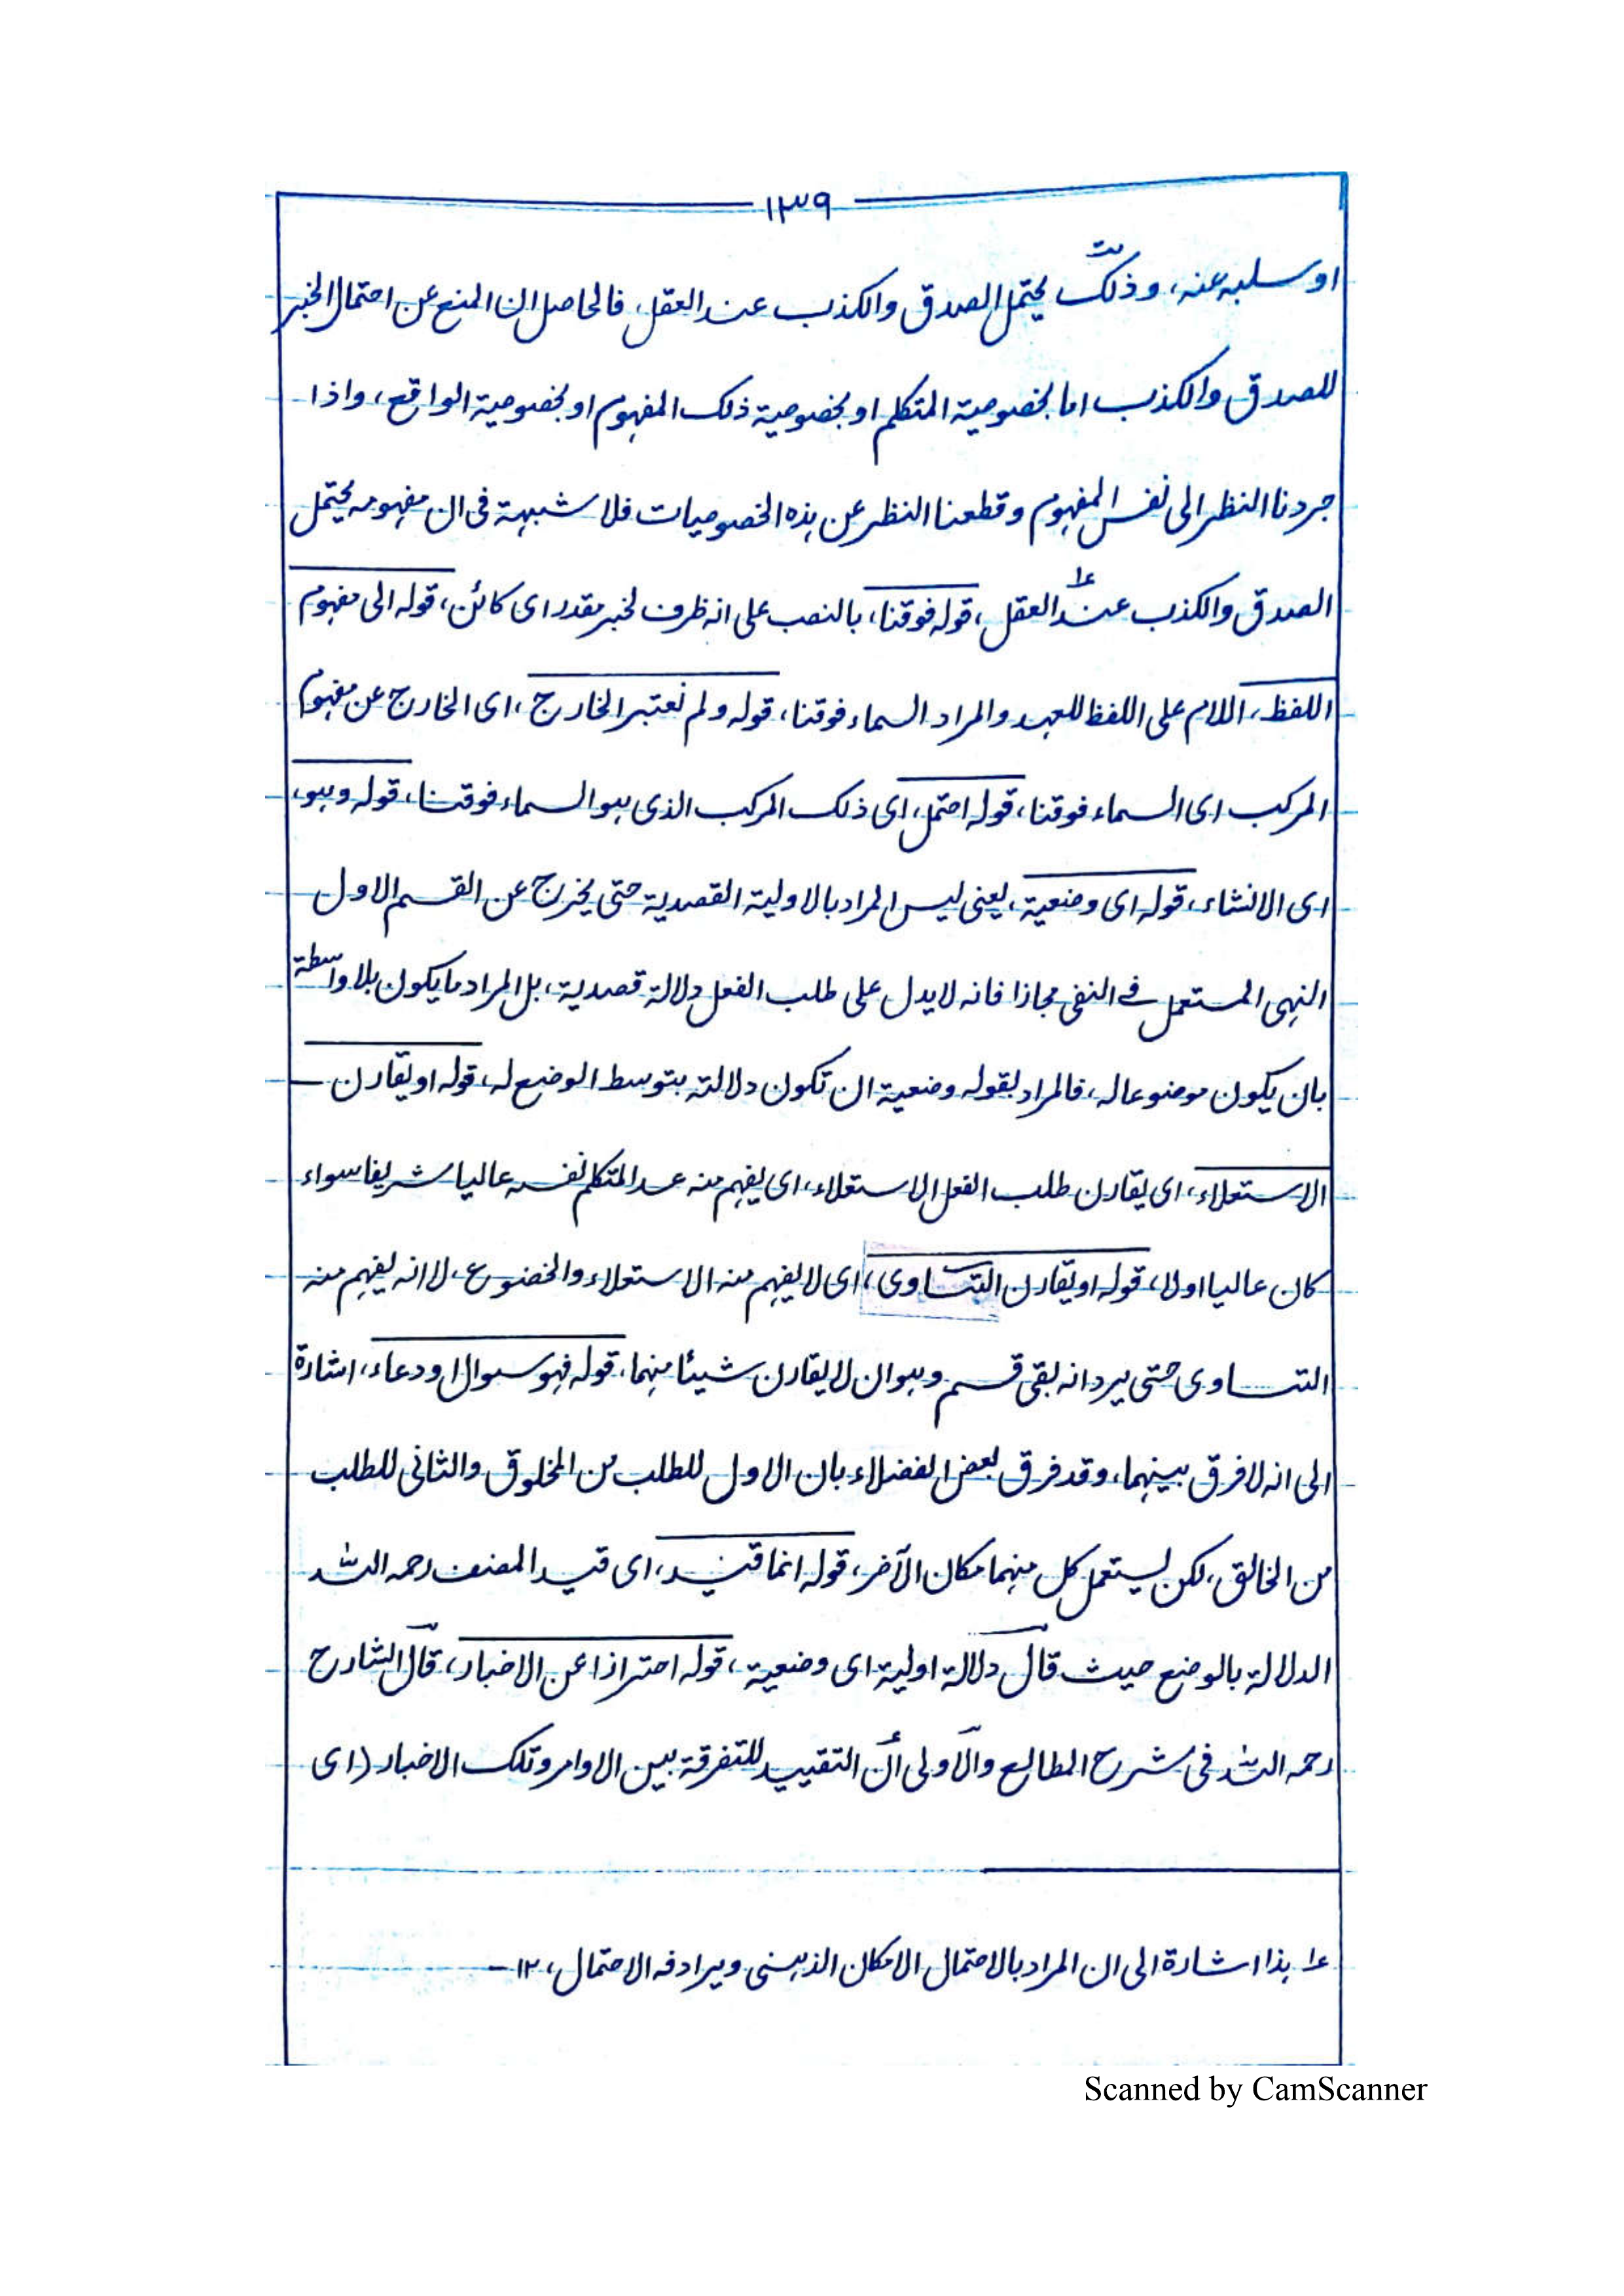 ١٣٩
او سلبه عنه، وذلك يحتمل الصدق والكذب عند العقل، فالحاصل ان المنع عن احتمال الخبر
للصدق والكذب اما لخصوصية المتكلم او لخصوصية ذلك المفهوم او لخصوصية الواقع، واذا
جردنا النظر الى نفس المفهوم وقطعنا النظر عن هذه الخصوصيات فلا شبهة فى ان مفهومه يحتمل
الصدق والكذب عند العقل، قوله فوقنا، بالنصب على انه ظرف لخبر مقدر اى كائن، قوله الى مفهوم
اللفظ، اللام على اللفظ للعهد والمراد السماء فوقنا، قوله ولم نعتبر الخارج، اى الخارج عن مفهوم
المركب اى السماء فوقنا، قوله احتمل، اى ذلك المركب الذى هو السماء فوقنا، قوله وهو،
اى الانشاء، قوله اى وضعية، يعنى ليس المراد بالاولية القصدية حتى يخرج عن القسم الاول
النهى المستعمل فى النفى مجازا فانه لا يدل على طلب الفعل دلالة قصدية، بل المراد ما يكون بلا واسطة
بان يكون موضوعا له، فالمراد بقوله وضعية ان تكون دلالته بتوسط الوضع له، قوله او يقارن —
الاستعلاء، اى يقارن طلب الفعل الاستعلاء، اى يفهم منه عد المتكلم نفسه عاليا شريفا سواء
كان عاليا اولا، قوله او يقارن التساوى، اى لا يفهم منه الاستعلاء والخضوع، لا انه يفهم منه
التساوى حتى يرد انه بقى قسم وهو ان لا يقارن شيئا منهما، قوله فهو سوال او دعاء، اشارة
الى انه لا فرق بينهما، وقد فرق بعض الفضلاء بان الاول للطلب من المخلوق والثانى للطلب
من الخالق، لكن يستعمل كل منهما مكان الآخر، قوله انما قيد، اى قيد المصنف رحمه الله
الدلالة بالوضع حيث قال دلالة اولية اى وضعية، قوله احترازا عن الاخبار، قال الشارح
رحمه الله فى شرح المطالع والاولى أن التقييد للتفرقة بين الاوامر وتلك الاخبار (اى
عا هذا اشارة الى ان المراد بالاحتمال الامكان الذهنى ويرادفه الاحتمال، ١٢ —
Scanned by CamScanner